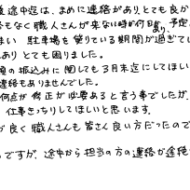 途中迄は、まめに連絡があり、とても良か
もなく職人さんが来ない時が何日あり、予定
まい 駐車場を貸りている期間が過ぎて
あり とても困りました。
の振込みに関しても3月末迄にしてほしい
連絡もありませんでした。
何点か修正が必要あると言う事でしたが、
仕事をきっちりしてほしいと思います。
が良く職人さんも皆さん良い方だったので
ですが、途中から担当の方の連絡が途絶